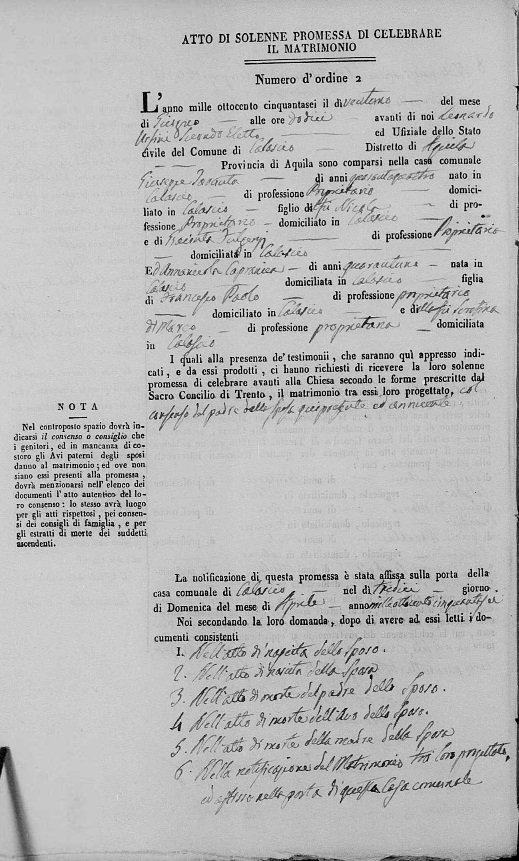 ATTO DI SOLENNE PROMESSA DI CELEBRARE
IL MATRIMONIO
Numero d'ordine 2
L'anno mille ottocento cinquantasei il dì ventuno del mese
di Giugno alle ore dodici avanti di noi Leonardo
Secondo Eletto ed Ufiziale dello Stato
civile del Comune di Calascio Distretto di Aquila
Provincia di Aquila sono comparsi nella casa comunale
Giuseppe di anni quarantaquattro nato in
Calascio di professione Proprietario domici-
liato in Calascio figlio del fu Nicola di pro-
fessione Proprietario domiciliato in Calascio
e di Giacinta Fulgenzi di professione Proprietaria
domiciliata in Calascio
Ed Domenicola Capranica di anni quarantuno nata in
Calascio domiciliata in Calascio figlia
di Francesco Paolo di professione proprietario
domiciliato in Calascio e di della fu Serafina
di Marco di professione proprietaria domiciliata
in Calascio
I quali alla presenza de' testimonii, che saranno quì appresso indi-
cati, e da essi prodotti, ci hanno richiesti di ricevere la loro solenne
promessa di celebrare avanti alla Chiesa secondo le forme prescritte dal
Sacro Concilio di Trento, il matrimonio tra essi loro progettato, col
consenso del padre della sposa qui presente ed annuente
NOTA
Nel controposto spazio dovrà in-
dicarsi il consenso o consiglio che
i genitori, ed in mancanza di co-
storo gli Avi paterni degli sposi
danno al matrimonio; ed ove non
siano essi presenti alla promessa,
dovrà menzionarsi nell'elenco dei
documenti l'atto autentico del lo-
ro consenso: lo stesso avrà luogo
per gli atti rispettosi, pei consen-
si dei consigli di famiglia, e per
gli estratti di morte dei suddetti
ascendenti.
La notificazione di questa promessa è stata affissa sulla porta della
casa comunale di Calascio nel dì tredici giorno
di Domenica del mese di Aprile anno mille ottocento cinquantasei
Noi secondando la loro domanda, dopo di avere ad essi letti i do-
cumenti consistenti
1. Nell'atto di nascita dello Sposo.
2. Nell'atto di nascita della Sposa
3. Nell'atto di morte del padre dello Sposo.
4. Nell'atto di morte dell'Avo dello Sposo.
5. Nell'atto di morte della madre della Sposa
6. Nella notificazione del Matrimonio tra loro progettato,
ed affisso nella porta di questa Casa comunale